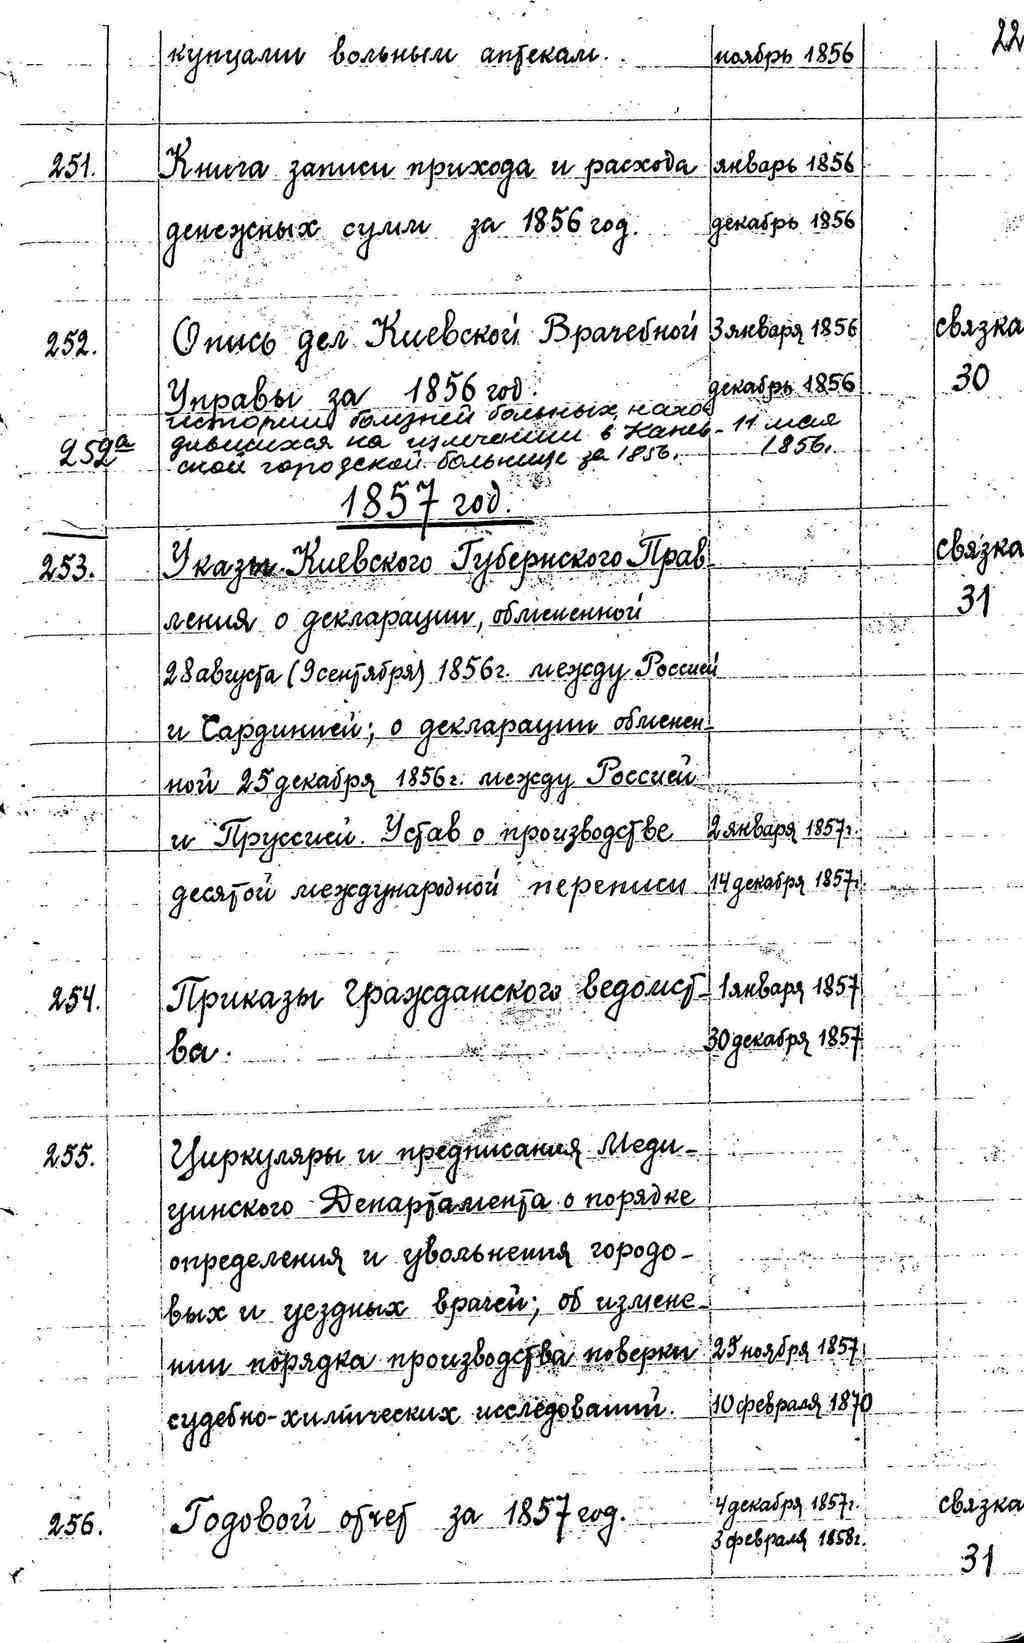 22
купцами вольным аптекам. ноябрь 1856
251. Книга записи прихода и расхода январь 1856
денежных сумм за 1856 год. декабрь 1856
252. Опись дел Киевской Врачебной 3 января 1856 связка
Управы за 1856 год. декабрь 1856 30
истории болезней больных, нахо-
252а дившихся на излечении в Канев- 11 мая
ской городской больнице за 1856. 1856.
1857 год.
253. Указы Киевского Губернского Прав- связка
ления о декларации, обмененной 31
28 августа (9 сентября) 1856г. между Россией
и Сардинией; о декларации обменен-
ной 25 декабря 1856г. между Россией
и Пруссией. Устав о производстве 2 января 1857г.
десятой международной переписи 14 декабря 1857г.
254. Приказы гражданского ведомст- 1 января 1857
ва. 30 декабря 1857
255. Циркуляры и предписания Меди-
цинского Департамента о порядке
определения и увольнения городо-
вых и уездных врачей; об измене-
нии порядка производства поверки 25 ноября 1857
судебно-химических исследований. 10 февраля 1870
256. Годовой отчет за 1857 год. 4 декабря 1857г. связка
3 февраля 1858г. 31